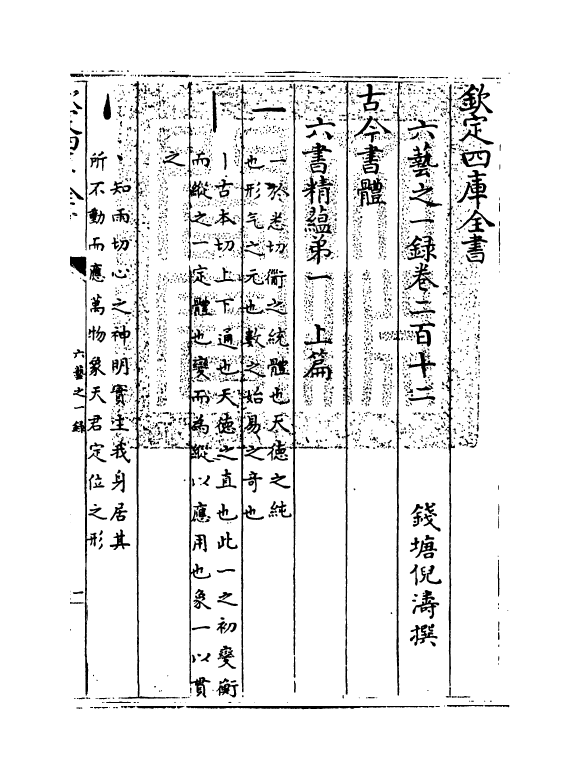 欽定四庫全書
六藝之一錄卷二百十二
錢塘倪濤撰
古今書體
六書精蘊弟一 上篇
一
一於悉切衜之統體也天德之純
也形气之元也數之始易之奇也
丨
丨古本切上下通也天德之直也此一之初變衡
而縱之一定體也變而為縱以應用也象一以貫
之
丶
丶知雨切心之神明實主我身居其
所不動而應萬物象天君定位之形
六藝之一錄